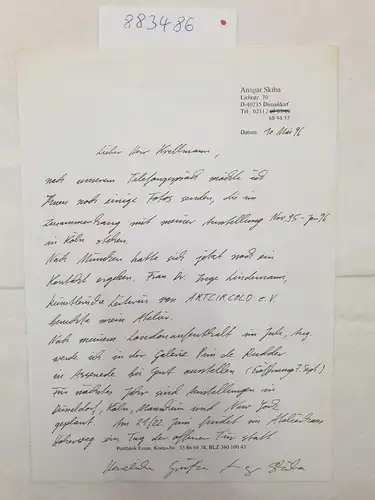 883486
Ansgar Skiba
Lichtstr. 70
D-40235 Düsseldorf
Tel. 0211/
68 94 57
Datum 10. Mai 96
Lieber Herr Krellmann,
nach unserem Telefongespräch möchte ich
Ihnen noch einige Fotos senden, die im
Zusammenhang mit meiner Ausstellung Nov. 95 - Jan. 96
in Köln stehen.
Nach München hatte sich jetzt noch ein
Kontakt ergeben. Frau Dr. Inge Lindemann,
künstlerische Leiterin von ARTCIRCOLO e.V.
besuchte mein Atelier.
Nach meinem Londonaufenthalt im Juli, Aug.
werde ich in der Galerie Pim de Rudder
in Assenede bei Gent ausstellen (Eröffnung 7. Sept.)
Für nächstes Jahr sind Ausstellungen in
Düsseldorf, Köln, Mannheim und New York
geplant. Am 21/22 Juni findet im Atelierhaus
Höherweg ein Tag der offenen Tür statt
Postbank Essen, Konto-Nr. 15 86 64 38, BLZ 360 100 43
Herzliche Grüße Ansgar Skiba